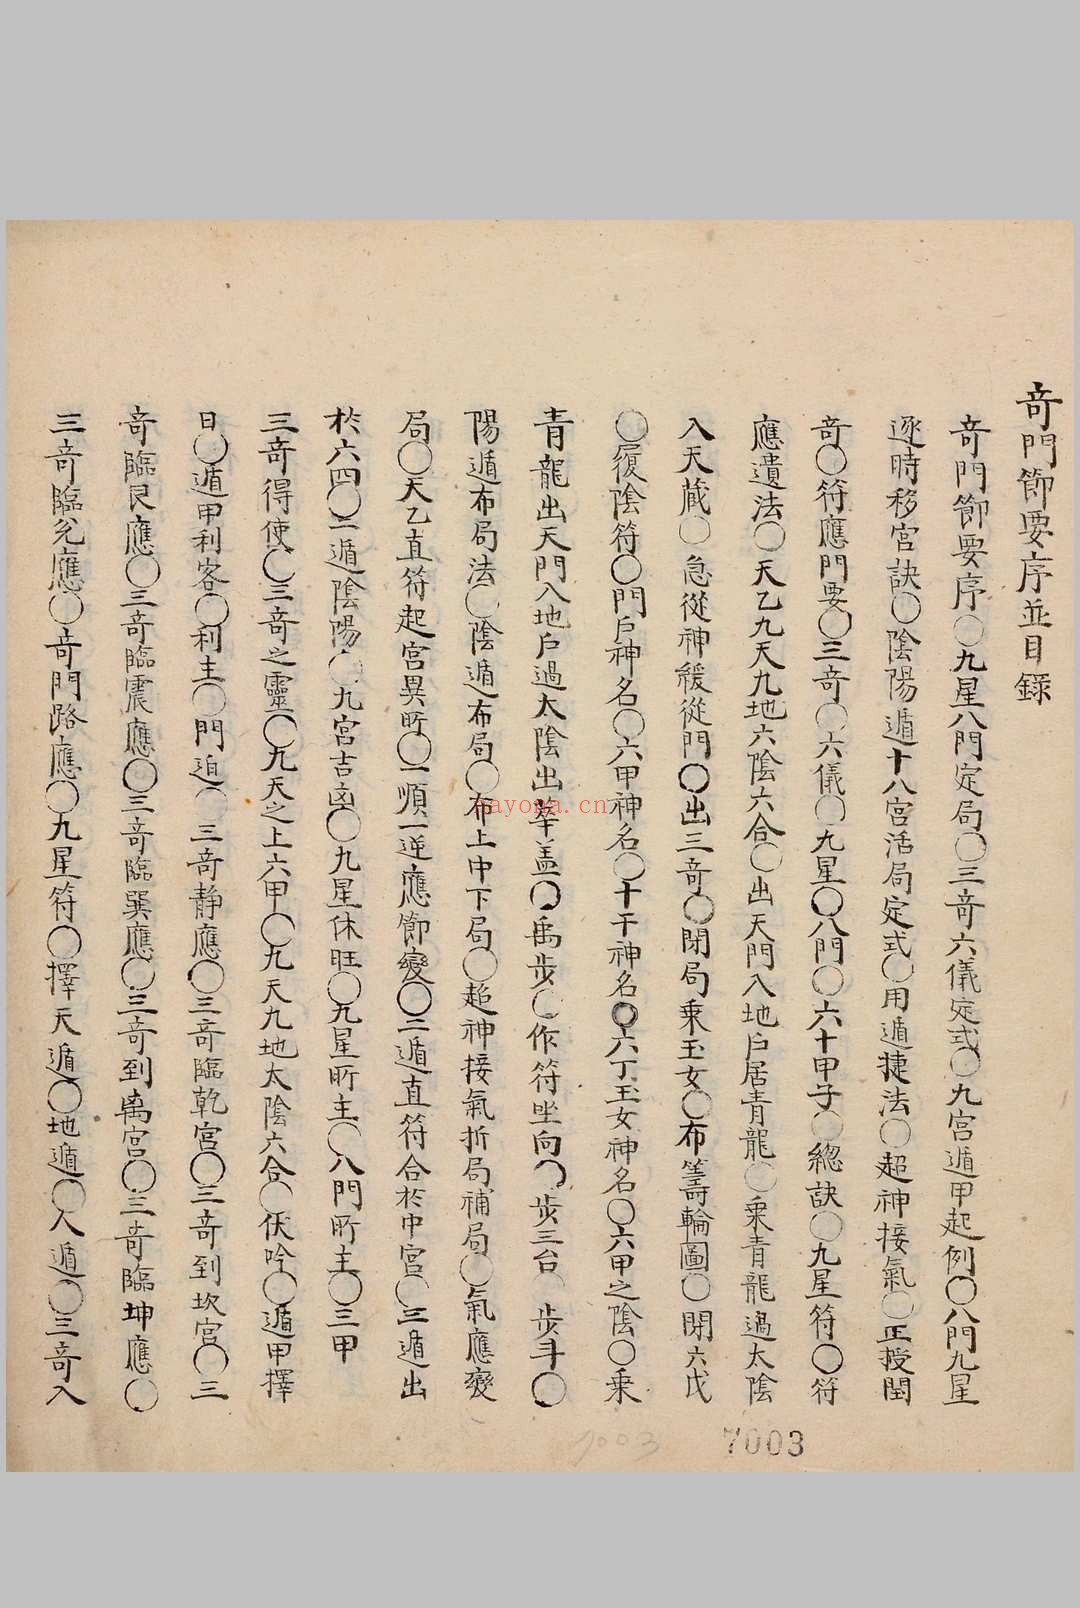 奇門節要序並目錄
奇門節要序〇九星八門定局〇三奇六儀定式〇九宮遁甲起例〇八門九星
逐時移宮訣〇陰陽遁十八宮活局定式〇用遁捷法〇超神接氣〇正授閏
奇〇符應門要〇三奇〇六儀〇九星〇八門〇六十甲子〇總訣〇九星符〇符
應遺法〇天乙九天九地六陰六合〇出天門入地戶居青龍〇乘青龍過太陰
入天藏〇急從神緩從門〇出三奇〇閉局乘玉女〇布籌輪圖〇閉六戊
〇履陰符〇門戶神名〇六甲神名〇十干神名〇六丁玉女神名〇六甲之陰〇乘
青龍出天門入地戶過太陰出華盖〇禹步〇作符坐向〇步三台〇步斗〇
陽遁布局法〇陰遁布局〇布上中下局〇超神接氣折局補局〇氣應變
局〇天乙直符起宮異所〇一順一逆應節變〇二遁直符合於中宮〇三遁出
於六四〇二遁陰陽〇九宮吉凶〇九星休旺〇九星所主〇八門所主〇三甲
三奇得使〇三奇之靈〇九天之上六甲〇九天九地太陰六合〇伏吟〇遁甲擇
日〇遁甲利客〇利主〇門迫〇三奇靜應〇三奇臨乾宮〇三奇到坎宮〇三
奇臨艮應〇三奇臨震應〇三奇臨巽應〇三奇到离宮〇三奇臨坤應〇
三奇臨兌應〇奇門路應〇九星符〇擇天遁〇地遁〇人遁〇三奇入
7003
7003
nayona.cn